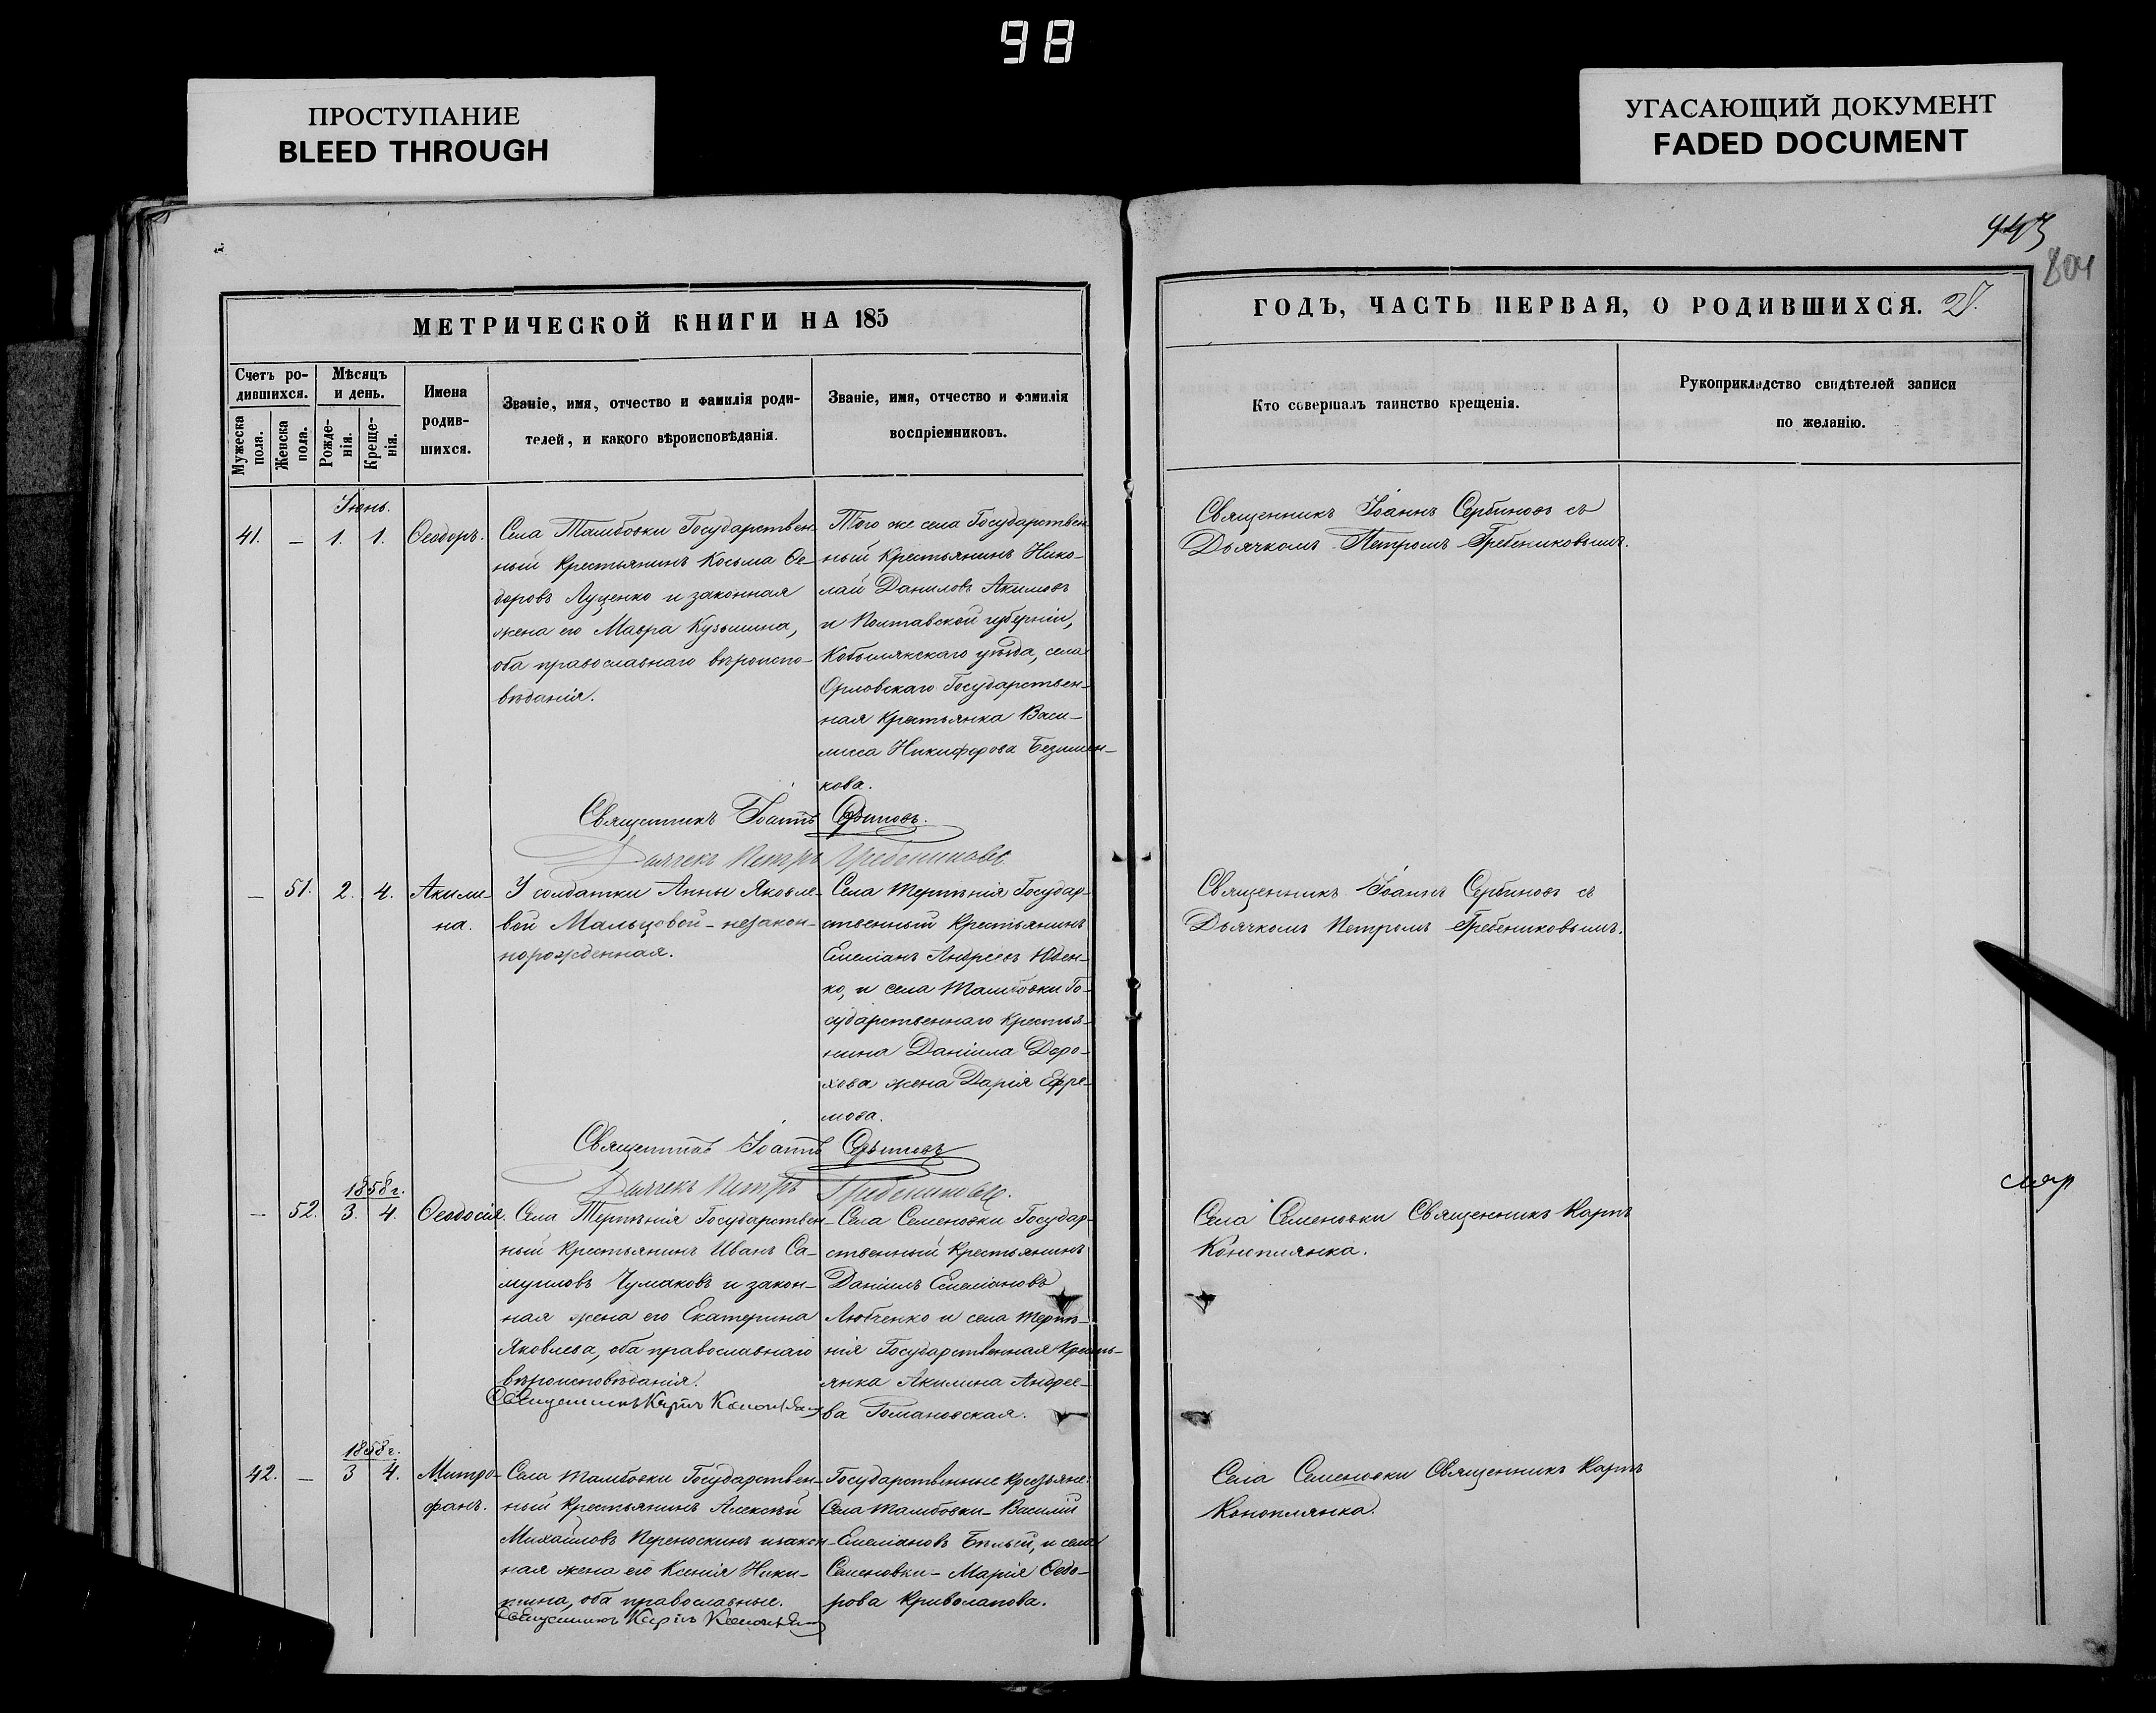 98
ПРОСТУПАНИЕ
BLEED THROUGH
УГАСАЮЩИЙ ДОКУМЕНТ
FADED DOCUMENT
804
МЕТРИЧЕСКОЙ КНИГИ НА 185
Счетъ ро-
дившихся.
Мужеска
пола.
Женска
пола.
Мѣсяцъ
и день.
Рожде-
нія.
Креще-
нія.
Имена
родив-
шихся.
Званіе, имя, отчество и фамилія роди-
телей, и какого вѣроисповѣданія.
Званіе, имя, отчество и фамилія
воспріемниковъ.
Іюнь.
41. — 1. 1. Ѳеодоръ.
Села Тамбовки Государствен-
ный Крестьянинъ Косьма Ѳе-
доровъ Луценко и законная
жена его Мавра Кузьмина,
оба православнаго вѣроиспо-
вѣданія.
Того же села Государствен-
ный Крестьянинъ Нико-
лай Даниловъ Акимовъ
и Полтавской губерніи,
Кобылякскаго уѣзда, села
Орловскаго Государствен-
ная Крестьянка Васи-
лисса Никифорова
кова.
Священникъ Іоаннъ Сербиновъ.
Дьячекъ Петръ Гребениковъ
— 51. 2. 4. Акили-
на.
У солдатки Анны Яковле-
вой Мальцовой - незакон-
норожденная.
Села Терпѣнія Государ-
ственный Крестьянинъ
Емеліанъ Андреевъ Юден-
ко, и села Тамбовки Го-
сударственнаго Крестья-
нина Даніила Доро-
хова жена Дарія Ефре-
мова.
Священникъ Іоаннъ Сербиновъ
Дьячекъ Петръ Гребениковъ.
1858 г.
— 52. 3. 4. Ѳеодосія.
Села Терпѣнія Государствен-
ный Крестьянинъ Иванъ Са-
муиловъ Чумаковъ и закон-
ная жена его Екатерина
Яковлева, оба православнаго
вѣроисповѣданія.
Священникъ Карпъ
Села Семеновки Государ-
ственный Крестьянинъ
Даніилъ Емеліановъ
Любченко и села Терпѣ-
нія Государственная Кресть-
янка Акилина Андрее-
ва Романовская.
1858 г.
42. — 3 4. Митро-
фанъ.
Села Тамбовки Государствен-
ный Крестьянинъ Алексѣй
Михайловъ Переноскинъ и закон-
ная жена его Ксенія Ники-
тина, оба православные.
Священникъ Карпъ
Государственные Крестьяне:
Села Тамбовки - Василій
Емеліановъ Бѣлый, и села
Семеновки - Марія Ѳедо-
рова Криволапова.
ГОДЪ, ЧАСТЬ ПЕРВАЯ, О РОДИВШИХСЯ.
Кто совершалъ таинство крещенія.
Рукоприкладство свидѣтелей записи
по желанію.
Священникъ Іоаннъ Сербиновъ съ
Дьячкомъ Петромъ Гребениковымъ.
Священникъ Іоаннъ Сербиновъ съ
Дьячкомъ Петромъ Гребениковымъ.
Села Семеновки Священникъ Карпъ
Коноплянка.
Села Семеновки Священникъ Карпъ
Коноплянка.